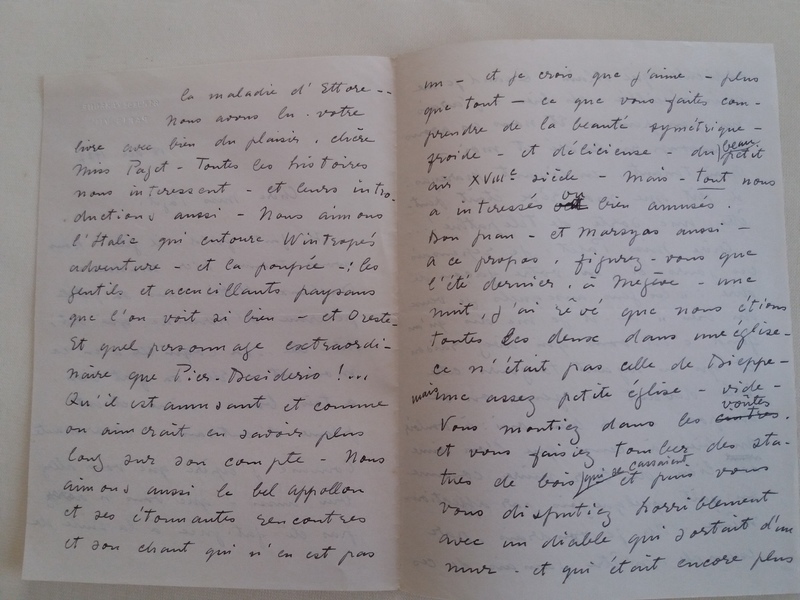 la maladie d'Ettore --
Nous avons lu votre
livre avec bien du plaisir, chère
Miss Paget - Toutes les histoires
nous intéressent - et leurs intro-
ductions aussi - Nous aimons
l'Italie qui entoure Winthrop's
adventure - et la poupée - ; les
gentils et accueillants paysans
que l'on voit si bien - et Oreste -
Et quel personnage extraordi-
naire que Pier-Desiderio !...
Qu'il est amusant et comme
on aimerait en savoir plus
long sur son compte - Nous
aimons aussi le bel appollon
et ses étonnantes rencontres
et son chant qui n'en est pas
un - et je crois que j'aime - plus
que tout - ce que vous faites com-
prendre de la beauté symétrique -
froide - et délicieuse - du beau
petit
air XVIIIe siècle - Mais - tout nous
a intéressés ou bien amusés.
Don Juan - et Marsyas aussi -
A ce propos, figurez-vous que
l'été dernier, à Megève - une
nuit, j'ai rêvé que nous étions
toutes les deux dans une église -
ce n'était pas celle de Dieppe -
mais une assez petite église - vide -
Vous montiez dans les voûtes
centres.
et vous faisiez tomber des sta-
tues de bois qui se cassaient et puis vous
vous disputiez horriblement
avec un diable qui sortait d'un
mur - et qui était encore plus